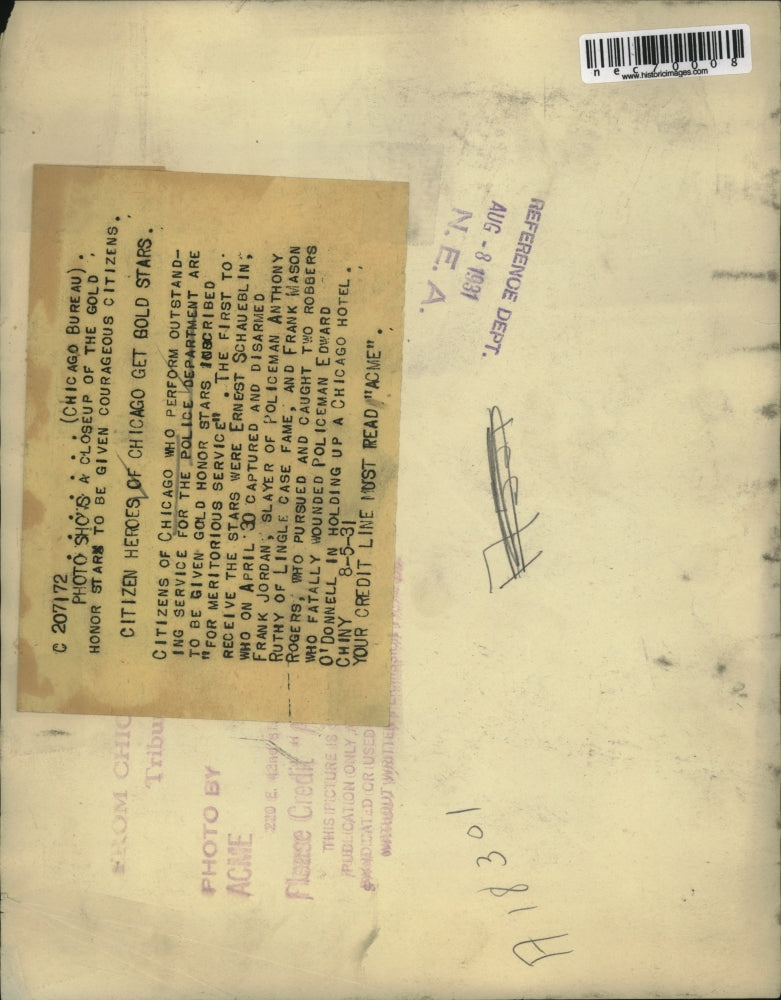 necz0008
www.historicimages.com
REFERENCE DEPT.
AUG - 8 1931
N. E. A.
C 207172 (CHICAGO BUREAU).
PHOTO SHO'S A CLOSEUP OF THE GOLD
HONOR STARS TO BE GIVEN COURAGEOUS CITIZENS.
CITIZEN HEROES OF CHICAGO GET GOLD STARS.
CITIZENS OF CHICAGO WHO PERFORM OUTSTAND-
ING SERVICE FOR THE POLICE DEPARTMENT ARE
TO BE GIVEN GOLD HONOR STARS INSCRIBED
"FOR MERITORIOUS SERVICE". THE FIRST TO
RECEIVE THE STARS WERE ERNEST SCHAUEBLIN,
WHO ON APRIL 30 CAPTURED AND DISARMED
FRANK JORDAN, SLAYER OF POLICEMAN ANTHONY
RUTHY OF LINGLE CASE FAME, AND FRANK MASON
ROGERS, WHO PURSUED AND CAUGHT TWO ROBBERS
WHO FATALLY WOUNDED POLICEMAN EDWARD
O'DONNELL IN HOLDING UP A CHICAGO HOTEL.
CHINY 8-5-31
YOUR CREDIT LINE MUST READ "ACME".
FROM CHIC
Tribu
PHOTO BY
ACME
220 E. 42nd St.
Please Credit "A
THIS PICTURE IS
PUBLICATION ONLY
SYNDICATED OR USED
WITHOUT WRITTEN PERMISSION
A 18301